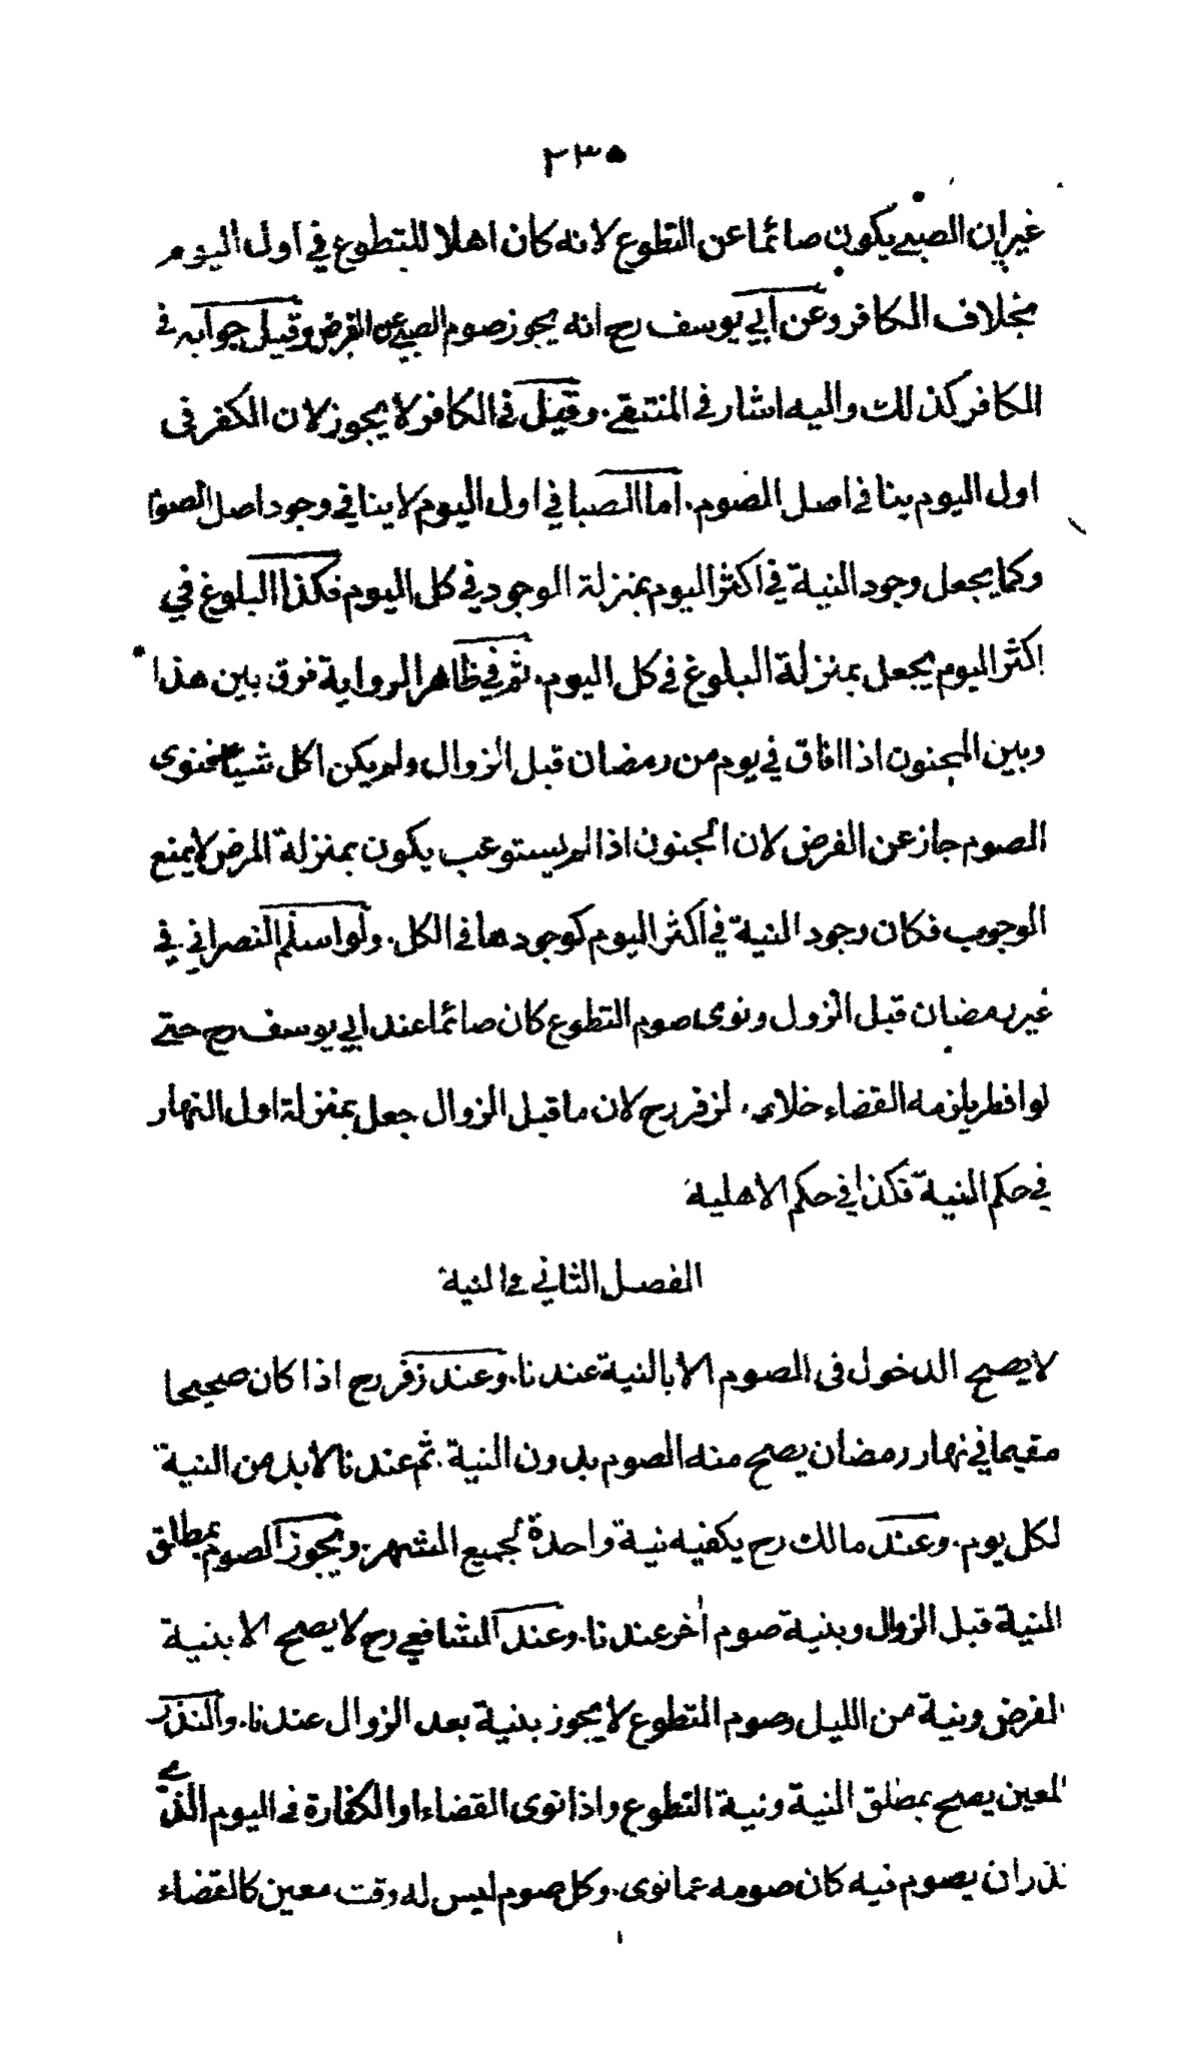 ٢٣٥
غير ان الصبي يكون صائما عن التطوع لانه كان اهلا للتطوع في اول اليوم
بخلاف الكافر وعن ابي يوسف رح انه يجوز صوم الصبي عن الفرض وقيل جوابه في
الكافر كذلك واليه اشار في المنتقى. وقيل في الكافر لا يجوز لان الكفر في
اول اليوم ينافي اصل الصوم. اما الصبا في اول اليوم لا ينافي وجود اصل الصوم
وكما يجعل وجود النية في اكثر اليوم بمنزلة الوجود في كل اليوم فكذا البلوغ في
اكثر اليوم يجعل بمنزلة البلوغ في كل اليوم. ثم في ظاهر الرواية فرق بين هذا
وبين المجنون اذا افاق في يوم من رمضان قبل الزوال ولم يكن اكل شيئا فنوى
الصوم جاز عن الفرض لان الجنون اذا لم يستوعب يكون بمنزلة المرض لا يمنع
الوجوب فكان وجود النية في اكثر اليوم كوجودها في الكل. ولو اسلم النصراني في
غير رمضان قبل الزول ونوى صوم التطوع كان صائما عند ابي يوسف رح حتى
لو افطر يلزمه القضاء خلافا لزفر رح لان ما قبل الزوال جعل بمنزلة اول النهار
في حكم النية فكذا في حكم الاهلية
الفصل الثاني في النية
لا يصح الدخول في الصوم الا بالنية عندنا. وعند زفر رح اذا كان صحيحا
مقيما في نهار رمضان يصح منه الصوم بدون النية. ثم عندنا لا بد من النية
لكل يوم. وعند مالك رح يكفيه نية واحدة لجميع الشهر. ويجوز الصوم بمطلق
النية قبل الزوال وبنية صوم اٰخر عندنا. وعند الشافعي رح لا يصح الا بنية
الفرض ونية من الليل وصوم التطوع لا يجوز بنية بعد الزوال عندنا. والنذر
المعين يصح بمطلق النية ونية التطوع واذا نوى القضاء او الكفارة في اليوم الذي
نذر ان يصوم فيه كان صومه عما نوى. وكل صوم ليس له وقت معين كالقضاء